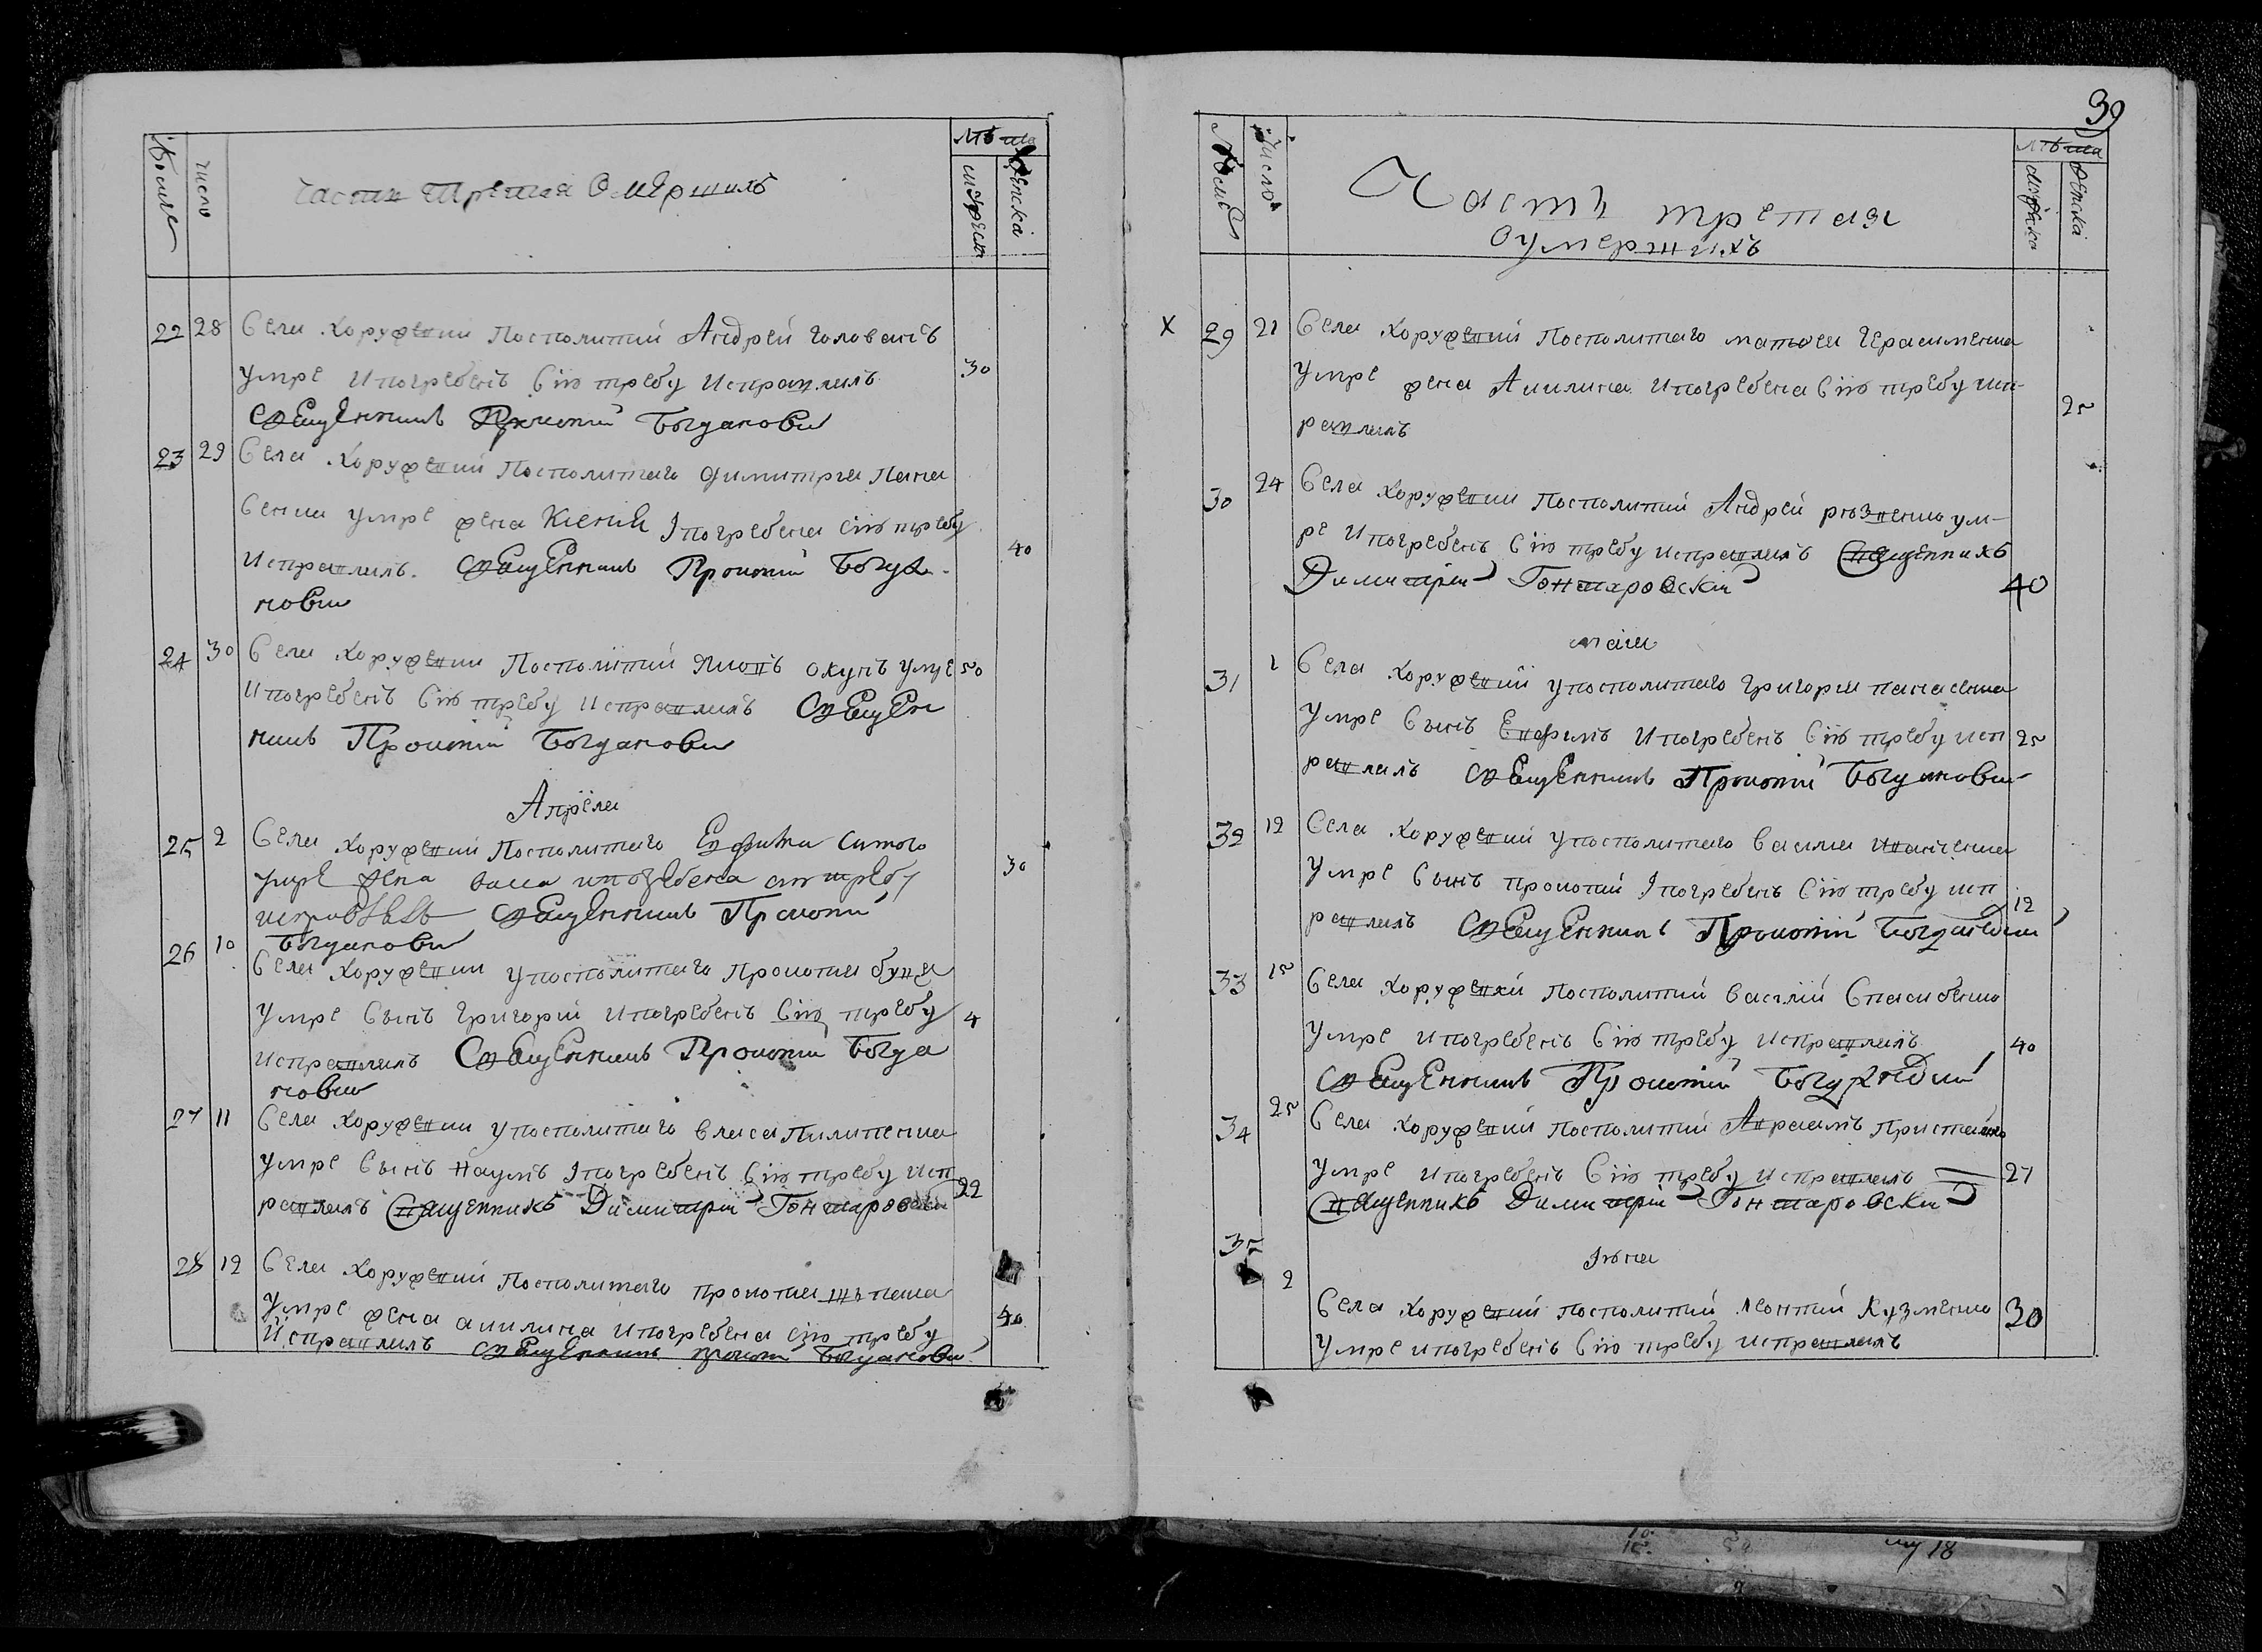 Часть Третяя Оумершихъ
число
лѣта
мужеска
женска
22 28 Села Хоружевки Посполитий Андрей Голованъ
умре и погребенъ Сию требу Исправилъ 30
Священникъ Прокопий Богданови
23 29 Села Хоружевки Посполитаго Димитрия Пана
сенка умре жена Ксения И погребена Сию требу
Исправилъ. Священникъ Прокопий Богда- 40
нови
24 30 Села Хоружевки Посполитий окунъ умре 50
И погребенъ Сию требу Исправилъ Священ
никъ Прокопий Богданови
Апреля
25 2 Села Хоружевки Посполитаго Ситого
умре жена васса и погребена сию требу 30
исправилъ Священникъ Прокопий
Богданови
26 10 Села Хоружевки у посполитаго Прокопия
умре Сынъ Григорий И погребенъ Сию требу 4
Исправилъ Священникъ Прокопий Богда
нови
27 11 Села Хоружевки у посполитаго власа Пилипенка
умре Сынъ Наумъ И погребенъ Сию требу Исп
равилъ Священникъ Димитрий Гончаровский 22
28 12 Села Хоружевки Посполитаго Прокопия
умре жена акилина И погребена Сию требу 40
Исправилъ Священникъ Прокопий Богданови
39
Часть третая
Оумершихъ
Число
лѣта
мужеска
женска
X 29 21 Села Хоружевки Посполитаго Матвея Герасименка
умре жена Акилина И погребена Сию требу исп-
равилъ 25
30 24 Села Хоружевки Посполитий Андрей ум-
ре И погребенъ Сию требу исправилъ Священникъ
Димитрий Гончаровский 40
маия
31 1 Села Хоружевки у посполитаго Григория панасенка
умре Сынъ Ефимъ И погребенъ Сию требу исп 25
равилъ Священникъ Прокопий Богданови
32 12 Села Хоружевки у посполитаго василия Иванченка
умре Сынъ прокопий И погребенъ Сию требу исп 12
равилъ Священникъ Прокопий
33 15 Села Хоружевки Посполитий василий Спасибенко
умре И погребенъ Сию требу Исправилъ 40
Священникъ Прокопий
34 25 Села Хоружевки Посполитий Авраамъ
умре И погребенъ Сию требу Исправилъ 27
Священникъ Димитрий Гончаровский
35
Июня
2 Села Хоружевки посполитий леонтий Кузменко 30
умре и погребенъ Сию требу исправилъ
18